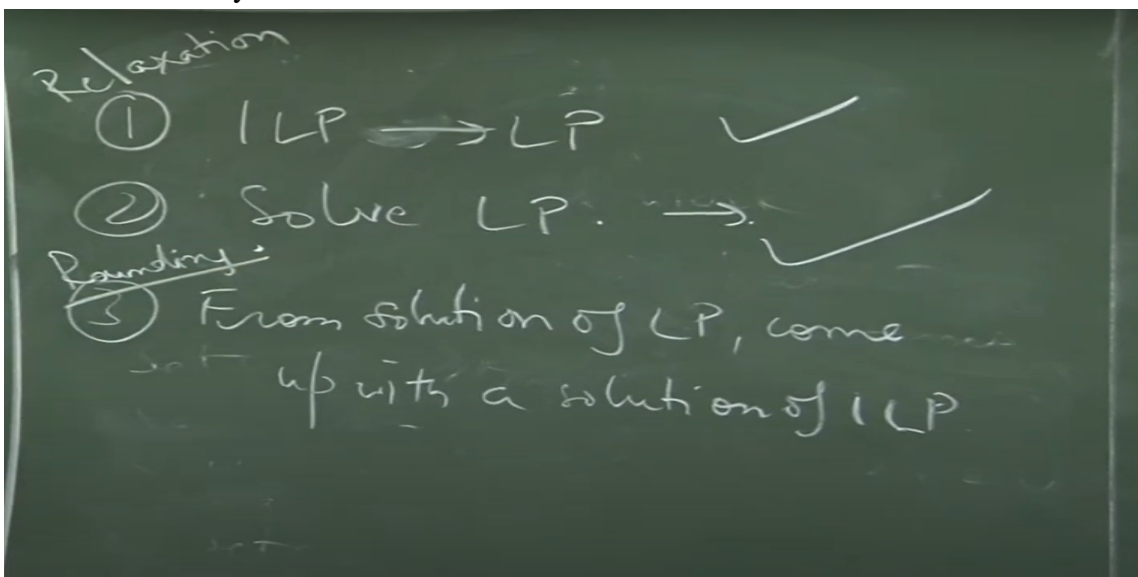 Relaxation
① ILP → LP ✓
② Solve LP. → ✓
Rounding.
③ From solution of LP, come
up with a solution of ILP